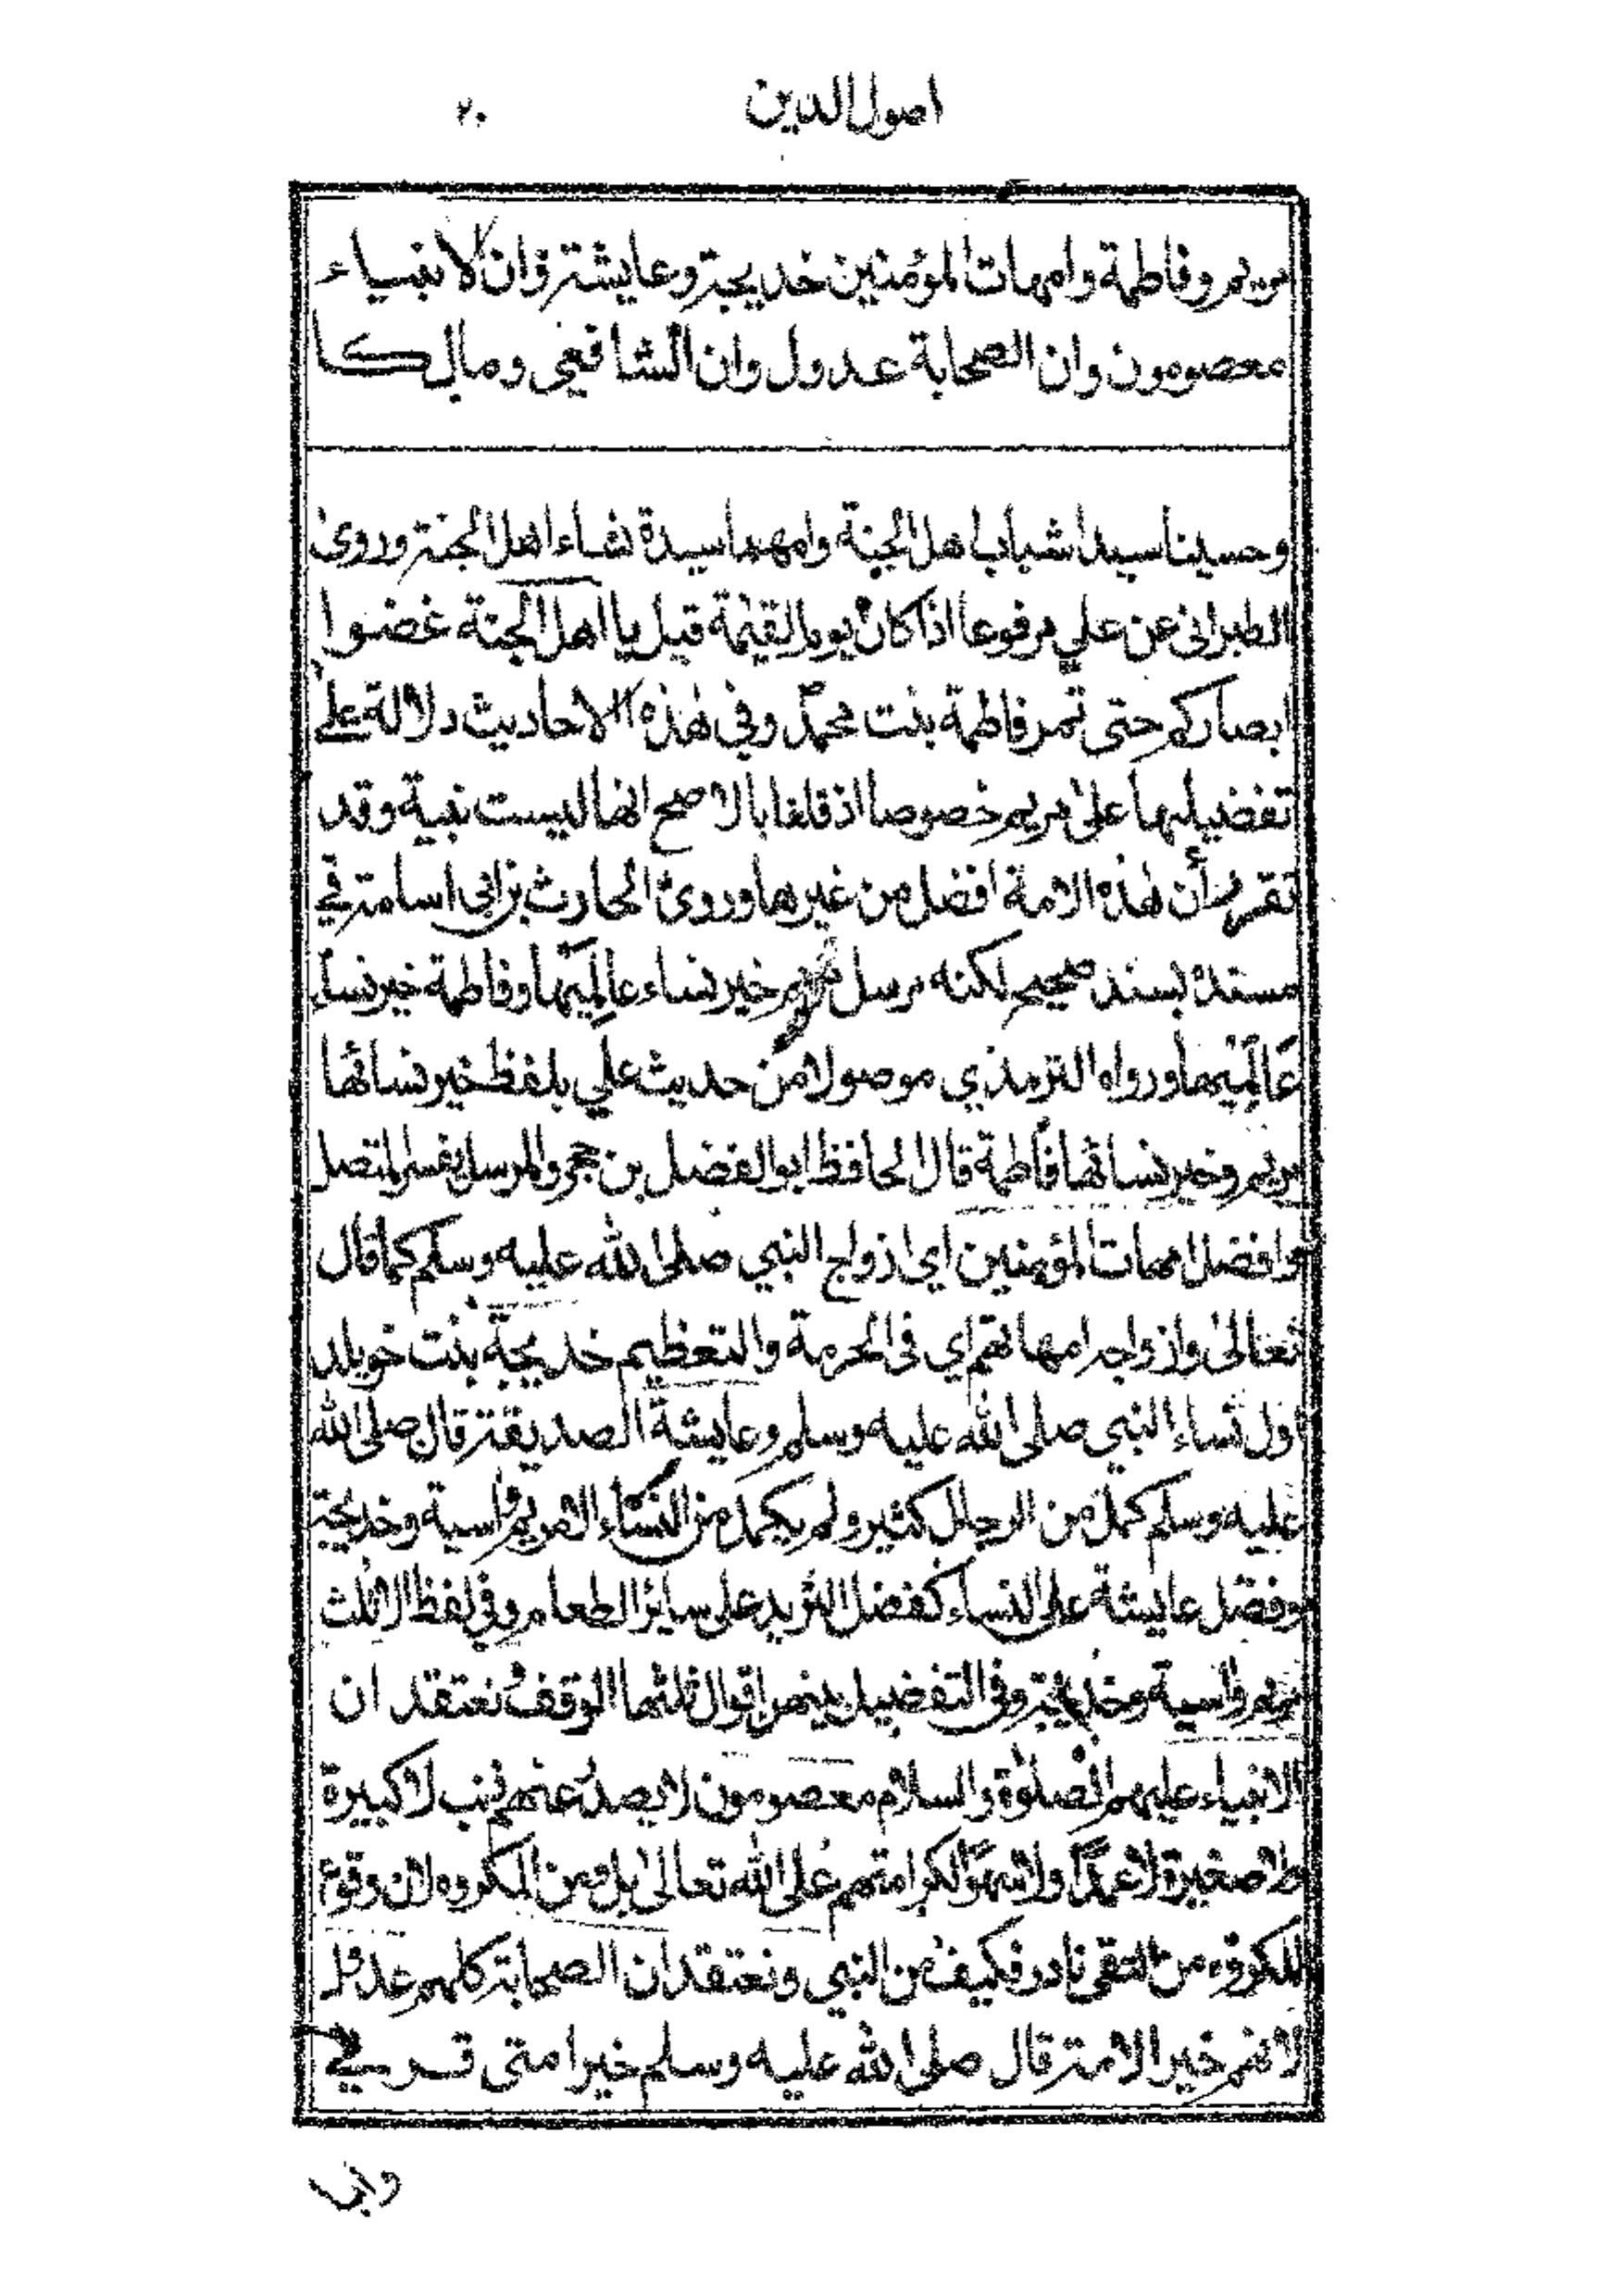 اصول الدين ٢٠
مريم وفاطمة وامهات المؤمنين خديجة وعايشة وان الانبياء
معصومون وان الصحابة عدول وان الشافعي ومالكا
وحسينا سيدا شباب اهل الجنة وامهما سيدة نساء اهل الجنة وروى
الطبرانى عن علي مرفوعا اذا كان يوم القيٰمة قيل يا اهل الجنة غضوا
ابصاركم حتى تمر فاطمة بنت محمّد وفي هٰذه الاحاديث دلالة على
تفضيلها على مريم خصوصا اذ قلنا بالاصح انها ليست نبية وقد
تقرر أن هٰذه الامة افضل من غيرها وروى الحارث بن ابى اسامة في
مسنده بسند صحيح لكنه مرسل مريم خير نساء عالَمِيْها وفاطمة خير نساء
عَالَمِيْها ورواه الترمذي موصولا من حديث علي بلفظ خير نسائها
مريم وخير نسائها فاطمة قال الحافظ ابو الفضل بن حجر والمرسل يفسر المتصل
وافضل امهات المؤمنين اي ازواج النبي صلى الله عليه وسلم كما قال
تعالى وازواجه امهاتهم اي فى الحرمة والتعظيم خديجة بنت خويلد
اول نساء النبي صلى الله عليه وسلم وعايشة الصديقة قال صلى الله
عليه وسلم كمل من الرجال كثير ولم يكمل من النساء الا مريم واسية وخديجة
وفضل عايشة على النساء كفضل الثريد على سائر الطعام وفي لفظ الا ثلث
مريم واسية وخديجة وفى التفضيل بينهن اقوال ثلثها الوقف ونعتقد ان
الانبياء عليهم الصلوٰة والسلام معصومون لا يصدر عنهم ذنب لا كبيرة
ولا صغيرة لا عمدًا ولا سهوًا لكرامتهم على الله تعالى بل ومن المكروه لان وقوع
المكروه من التقى نادر فكيف من النبي ونعتقد ان الصحابة كلهم عدول
لانهم خير الامة قال صلى الله عليه وسلم خير امتى قرني